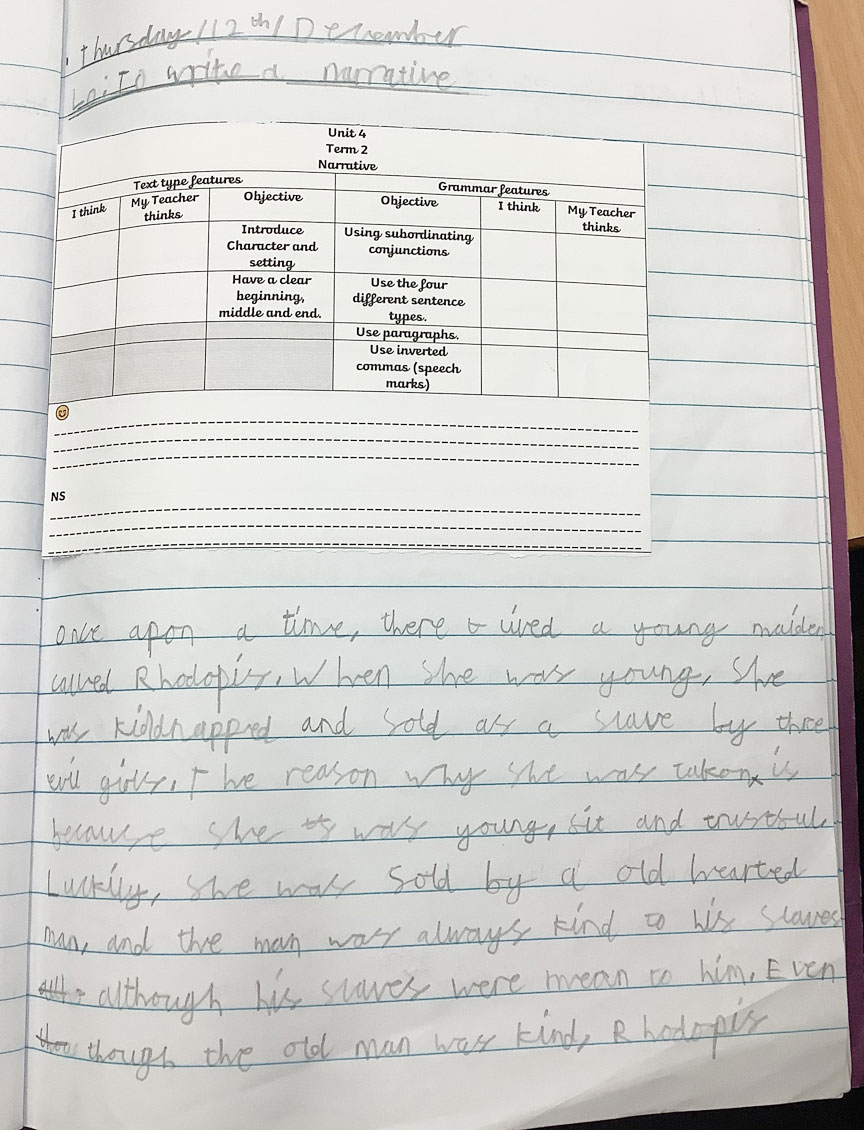 Thursday/12th/December
L.o: To write a narrative
Unit 4
Term 2
Narrative
Text type features Grammar features
I think My Teacher thinks Objective Objective I think My Teacher thinks
Introduce Character and setting Using subordinating conjunctions
Have a clear beginning, middle and end. Use the four different sentence types.
Use paragraphs.
Use inverted commas (speech marks)
NS
once apon a time, there lived a young maiden
called Rhodopis. When she was young, she
was kiddnapped and sold as a slave by three
evil girls. The reason why she was taken is
because she was young, fit and trustful.
Luckily, she was sold by a old hearted
man, and the man was always kind to his slaves
although his slaves were mean to him. Even
though the old man was kind, Rhodopis